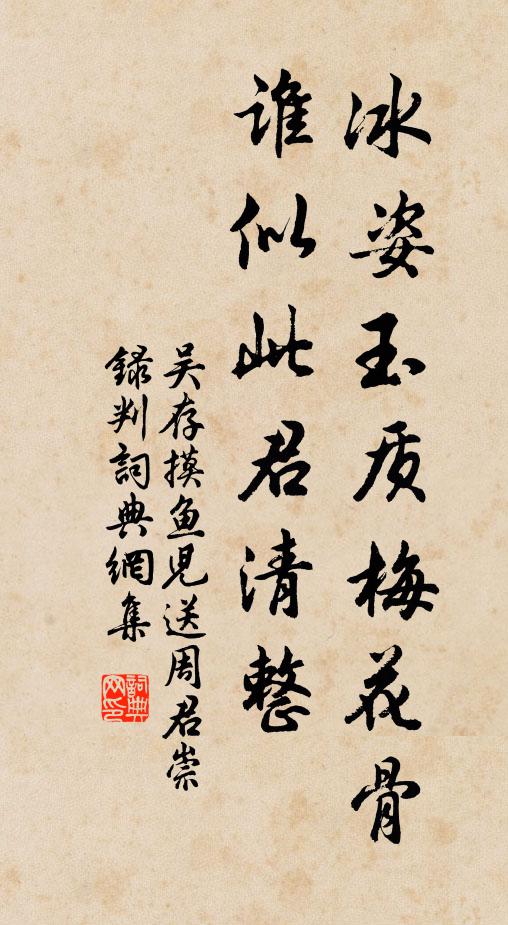 冰姿玉质梅花骨
谁似此君清整
吴存摸鱼儿送周君崇
録判詞典網集
詞典网印